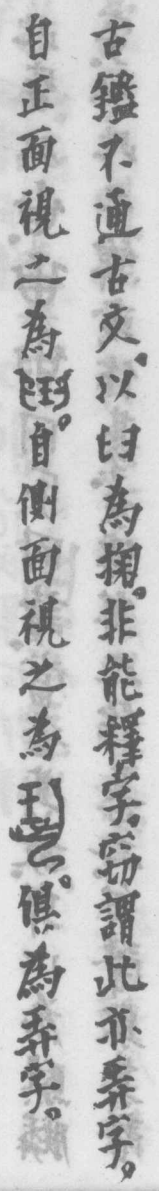 古鑑不通古文、以𦥑為掬。非能釋字。竊謂此亦弄字，
自正面視之為。自側面視之為。俱為弄字。